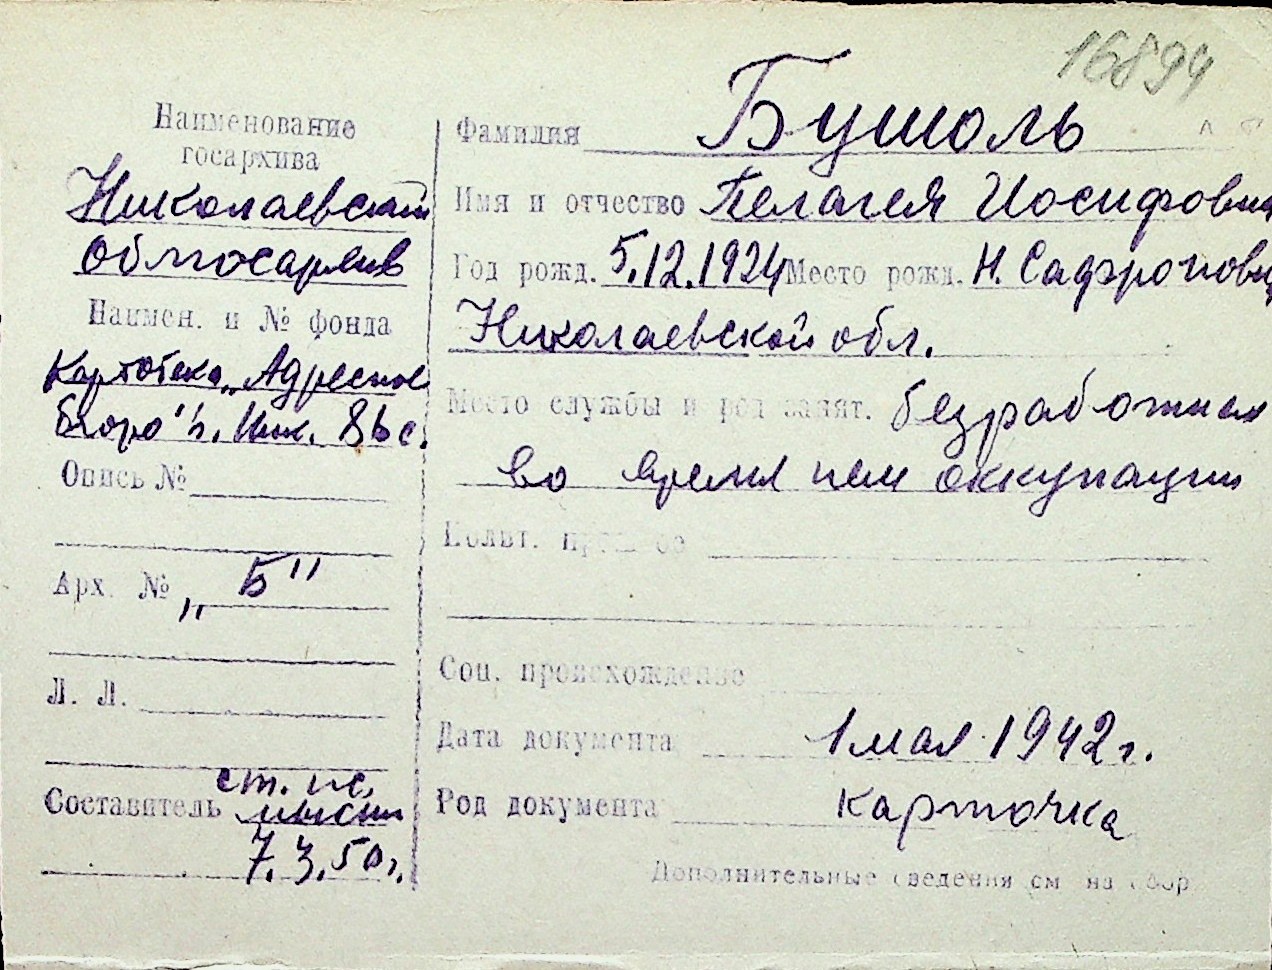 16894
Наименование
госархива
Николаевский
Облгосархив
Наимен. и № фонда
Картотека „Адресное
бюро" г. Ник.
Опись №
Арх. № „Б"
Л. Л.
Составитель ст. н.с.
7.3.50 г.
Фамилия Бушоль
Имя и отчество Пелагея Иосифовна
Год рожд. 5.12.1924 Место рожд. Н. Сафроновка
Николаевской обл.
Место службы и род занят. безработная
во время нем оккупации
Соц. происхождение
Дата документа 1 мая 1942 г.
Род документа карточка
Дополнительные сведения см на обор